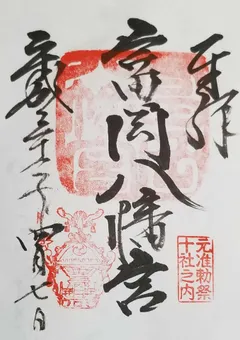 奉拝
富岡八幡宮
平成三十一年 四月七日
元准勅祭
十社之内